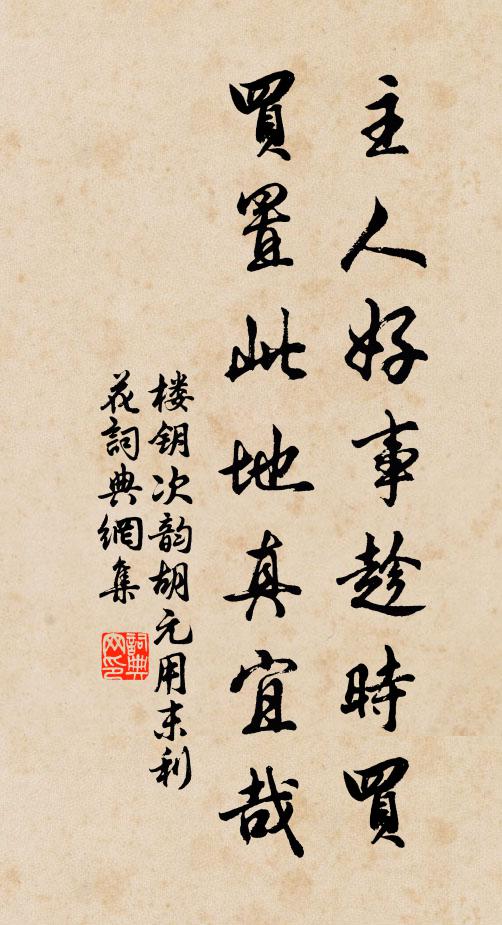 主人好事趁時買
買置此地真宜哉
楼钥次韵胡元用末利
花詞典網集
詞典网印